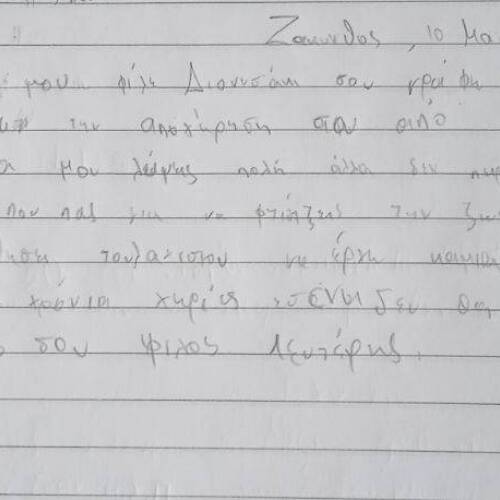 Ζακυνθος, 10 Μα
μου φίλε Διονυσάκι σου γράφω
την αποχώρηση σου από
μου λείψης πολή άλλα δεν
που πας για να φτιάξεις την ζω
τουλαχιστον να έρχε
χρόνια χωρίς εσένα δεν θα
σου φίλος Λευτέρης.